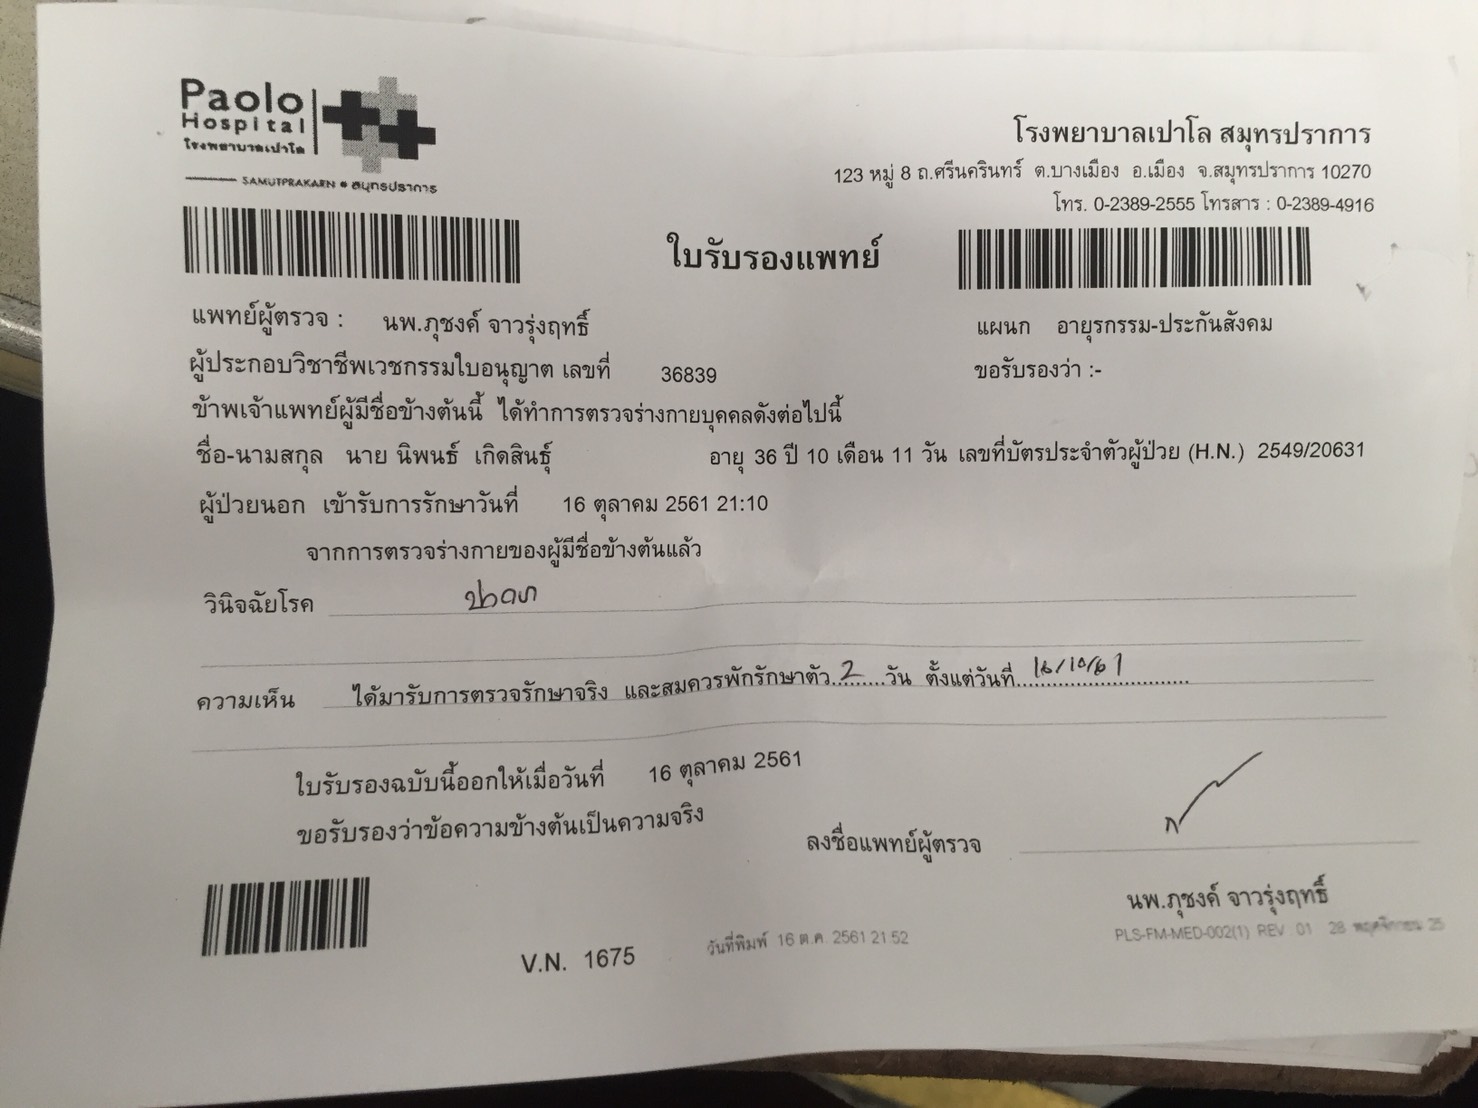 Paolo
Hospital
โรงพยาบาลเปาโล
SAMUTPRAKARN • สมุทรปราการ
โรงพยาบาลเปาโล สมุทรปราการ
123 หมู่ 8 ถ.ศรีนครินทร์ ต.บางเมือง อ.เมือง จ.สมุทรปราการ 10270
โทร. 0-2389-2555 โทรสาร : 0-2389-4916
ใบรับรองแพทย์
แพทย์ผู้ตรวจ : นพ.ภุชงค์ จาวรุ่งฤทธิ์ แผนก อายุรกรรม-ประกันสังคม
ผู้ประกอบวิชาชีพเวชกรรมใบอนุญาต เลขที่ 36839 ขอรับรองว่า :-
ข้าพเจ้าแพทย์ผู้มีชื่อข้างต้นนี้ ได้ทำการตรวจร่างกายบุคคลดังต่อไปนี้
ชื่อ-นามสกุล นาย นิพนธ์ เกิดสินธุ์ อายุ 36 ปี 10 เดือน 11 วัน เลขที่บัตรประจำตัวผู้ป่วย (H.N.) 2549/20631
ผู้ป่วยนอก เข้ารับการรักษาวันที่ 16 ตุลาคม 2561 21:10
จากการตรวจร่างกายของผู้มีชื่อข้างต้นแล้ว
วินิจฉัยโรค
ความเห็น ได้มารับการตรวจรักษาจริง และสมควรพักรักษาตัว..2......วัน ตั้งแต่วันที่...16/10/61...
ใบรับรองฉบับนี้ออกให้เมื่อวันที่ 16 ตุลาคม 2561
ขอรับรองว่าข้อความข้างต้นเป็นความจริง
ลงชื่อแพทย์ผู้ตรวจ
นพ.ภุชงค์ จาวรุ่งฤทธิ์
V.N. 1675
วันที่พิมพ์ 16 ต.ค. 2561 21:52
PLS-FM-MED-002(1) REV 01 28 พฤศจิกายน 25